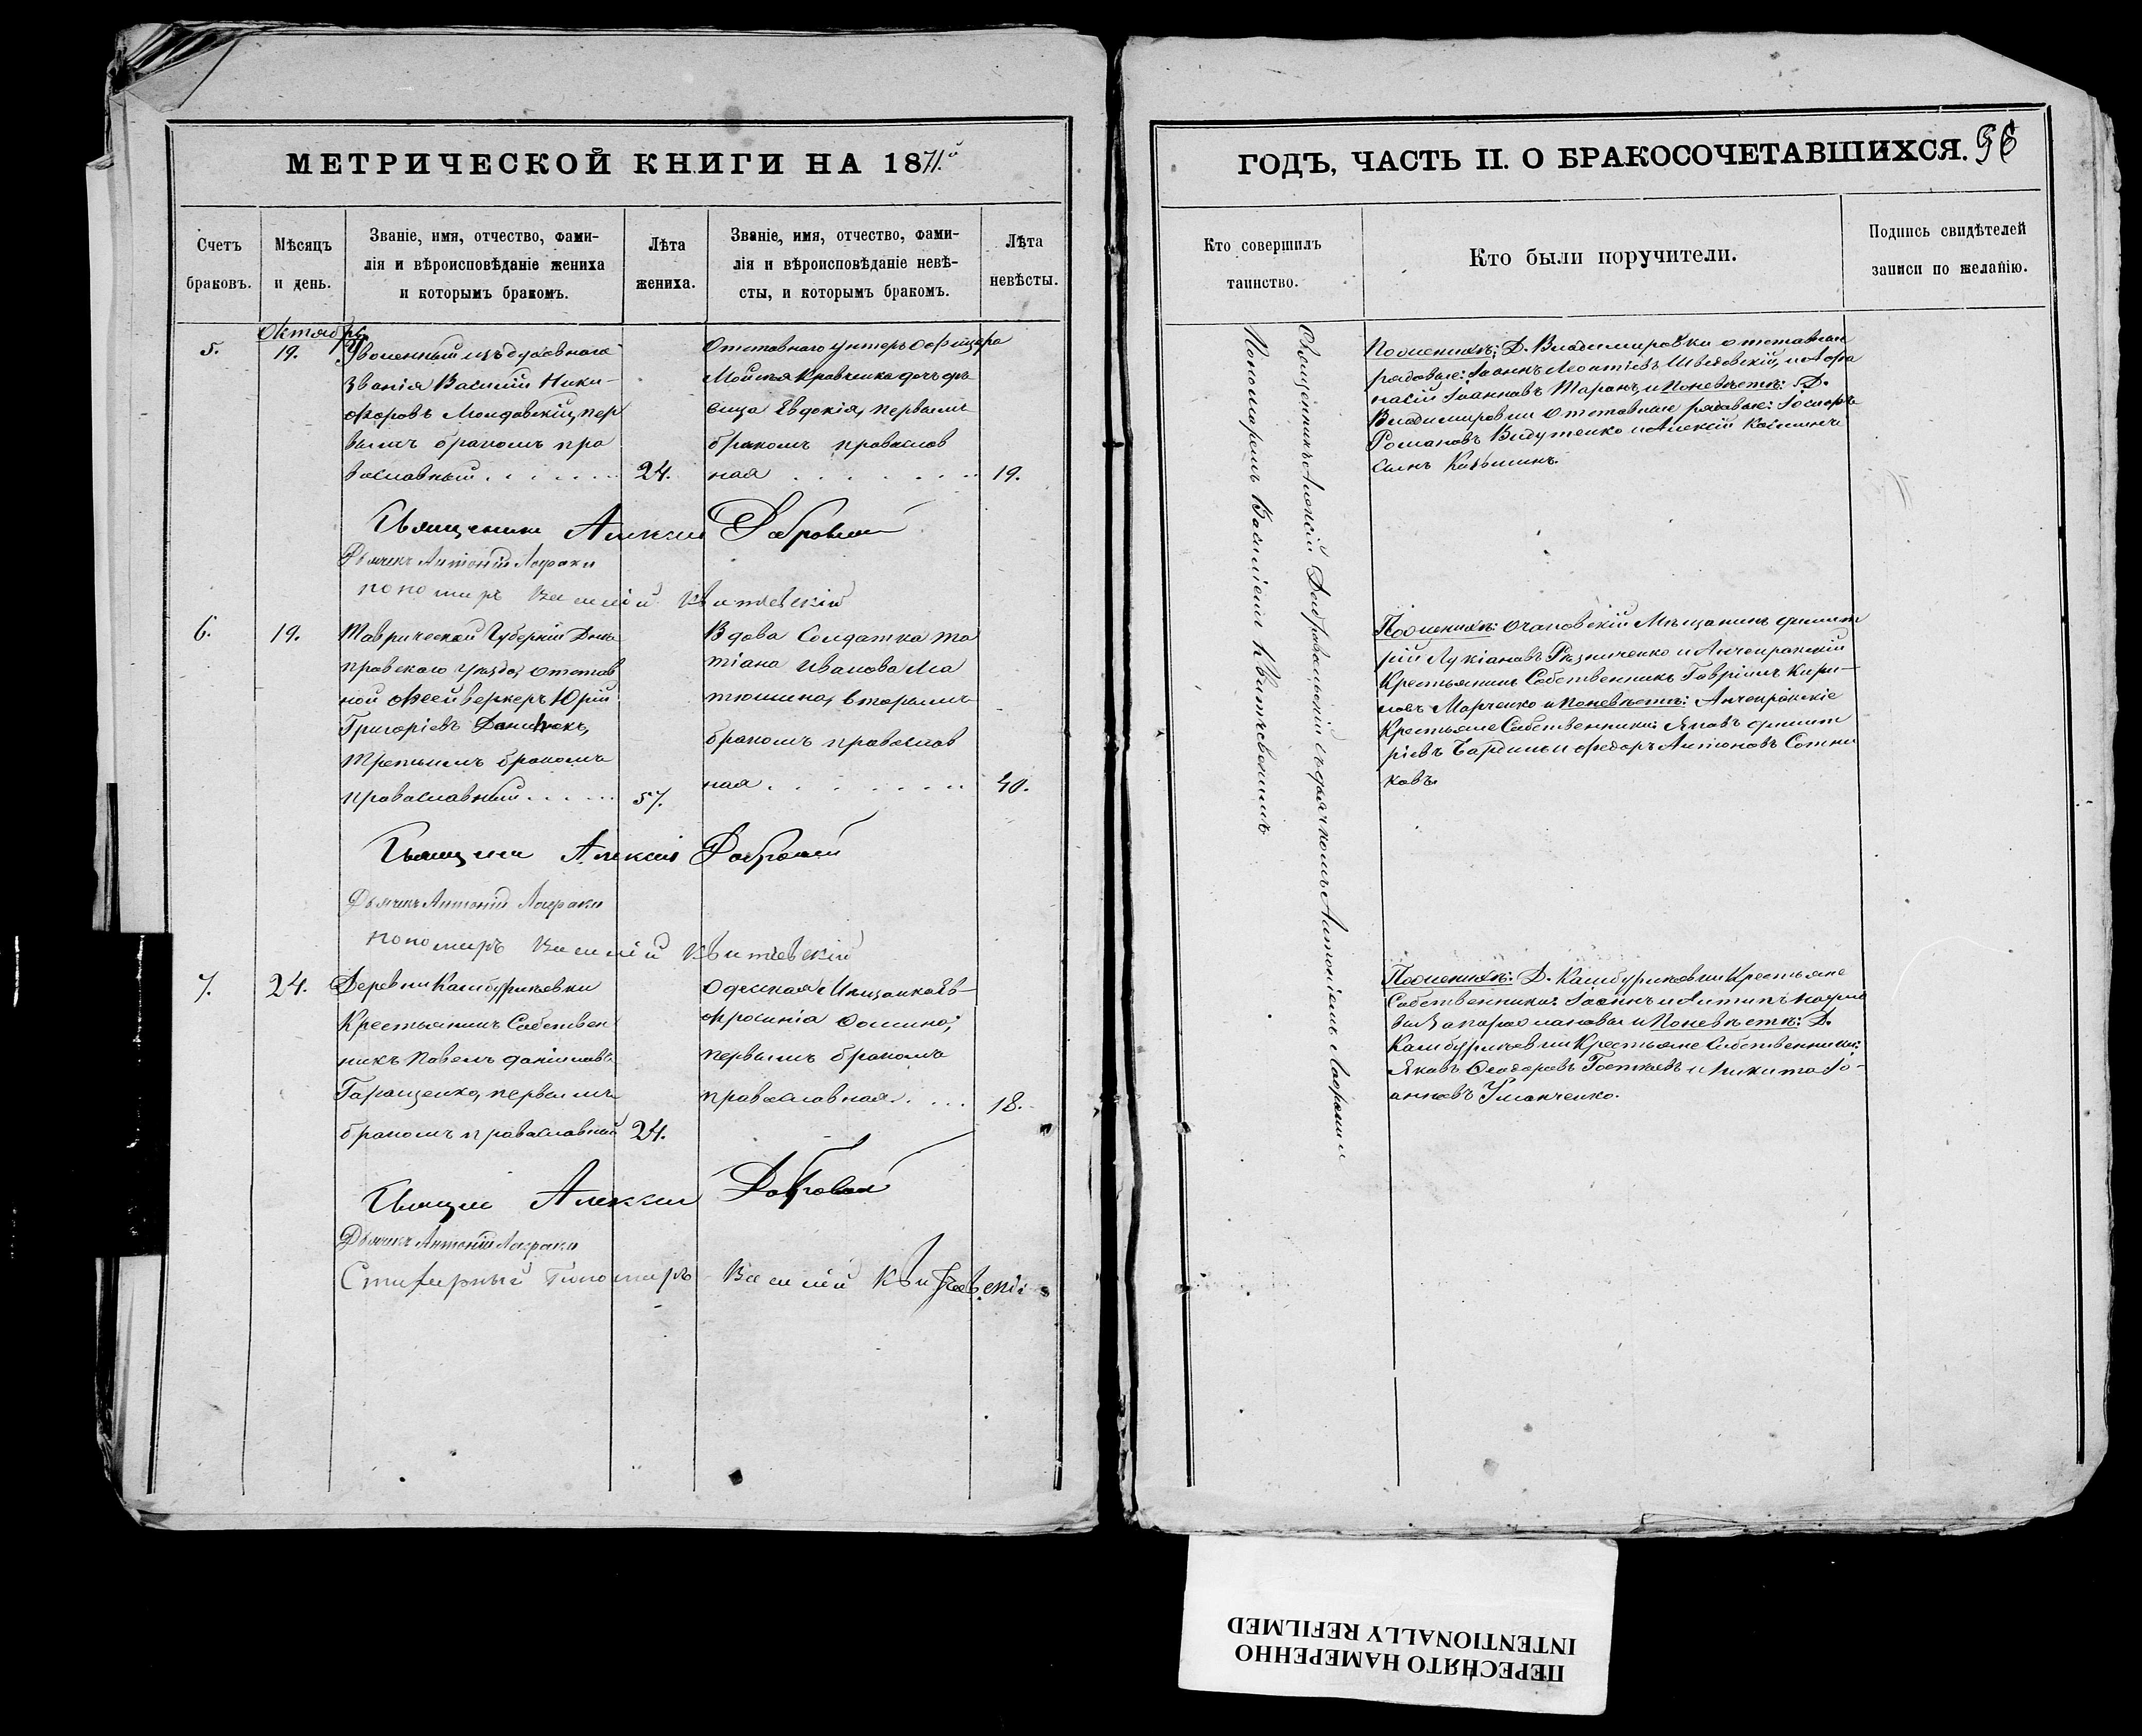 МЕТРИЧЕСКОЙ КНИГИ НА 1871й
Счетъ браковъ.
Мѣсяцъ и день.
Званіе, имя, отчество, фами-
лія и вѣроисповѣданіе жениха
и которымъ бракомъ.
Лѣта жениха.
Званіе, имя, отчество, фами-
лія и вѣроисповѣданіе невѣ-
сты, и которымъ бракомъ.
Лѣта невѣсты.
5.
Октябрь
19.
Уволенный изъ духовнаго
званія Василій Ники-
форовъ Молдавскій, пер
вымъ бракомъ пра
вославный
24.
Отставнаго унтеръ офицера
Моисея Кравченка дочь дѣ
вица Евдокія, первымъ
бракомъ православ
ная
19.
Священникъ Алексій
Дьячекъ Антоній
пономарь Василій Квитчевскій
6.
19.
Таврической Губерніи Днѣ
провскаго уѣзда, отстав
ной Фейверкеръ Юрій
Григоріевъ
третьимъ бракомъ
православный
57.
Вдова Солдатка Та
тіана Иванова Ма
тюшина, вторымъ
бракомъ православ
ная
40.
Алексій
Дьячекъ Антоній
пономарь Василій Квитчевскій
7.
24.
Деревни Камбуриевки
Крестьянинъ Собствен
никъ Павелъ Даніиловъ
Геращенко, первымъ
бракомъ православный
24.
Одесская Мѣщанка Ев-
фросинія Фомина,
первымъ бракомъ
православная
18.
Алексій
Дьячекъ Антоній
Пономарь Василій Квитчевскій
ГОДЪ, ЧАСТЬ II. О БРАКОСОЧЕТАВШИХСЯ.
Кто совершилъ
таинство.
Кто были поручители.
Подпись свидѣтелей
записи по желанію.
Священникъ Алексій Добровольскій съ дьячкомъ Антоніемъ
Пономаремъ Василіемъ Квитчевскимъ
По женихѣ: Д. Владимировки отставные
рядовые: Іоаннъ Леонтіевъ Шведовскій, и Афа
насій Іоанновъ Таранъ, и По невѣстѣ: Д.
Владимировки отставные рядовые:
Романовъ Видутенко и Алексій
сынъ
По женихѣ: Очаковскій Мѣщанинъ Димит
рій Лукіановъ Рѣзниченко и Анчекракскій
Крестьянинъ Собственникъ Гавріилъ Кири-
ловъ Марченко и По невѣстѣ: Анчекракскіе
Крестьяне Собственники: Яковъ Димит
ріевъ и Федоръ Антоновъ Сотни
ковъ.
По женихѣ: Д. Камбуриевки Крестьяне
Собственники: Іоаннъ и Антипъ
и По невѣстѣ: Д.
Камбуриевки Крестьяне Собственники:
Яковъ Феодоровъ и Никита Іо-
анновъ Уманченко.
ПЕРЕСНЯТО НАМЕРЕННО
INTENTIONALLY REFILMED